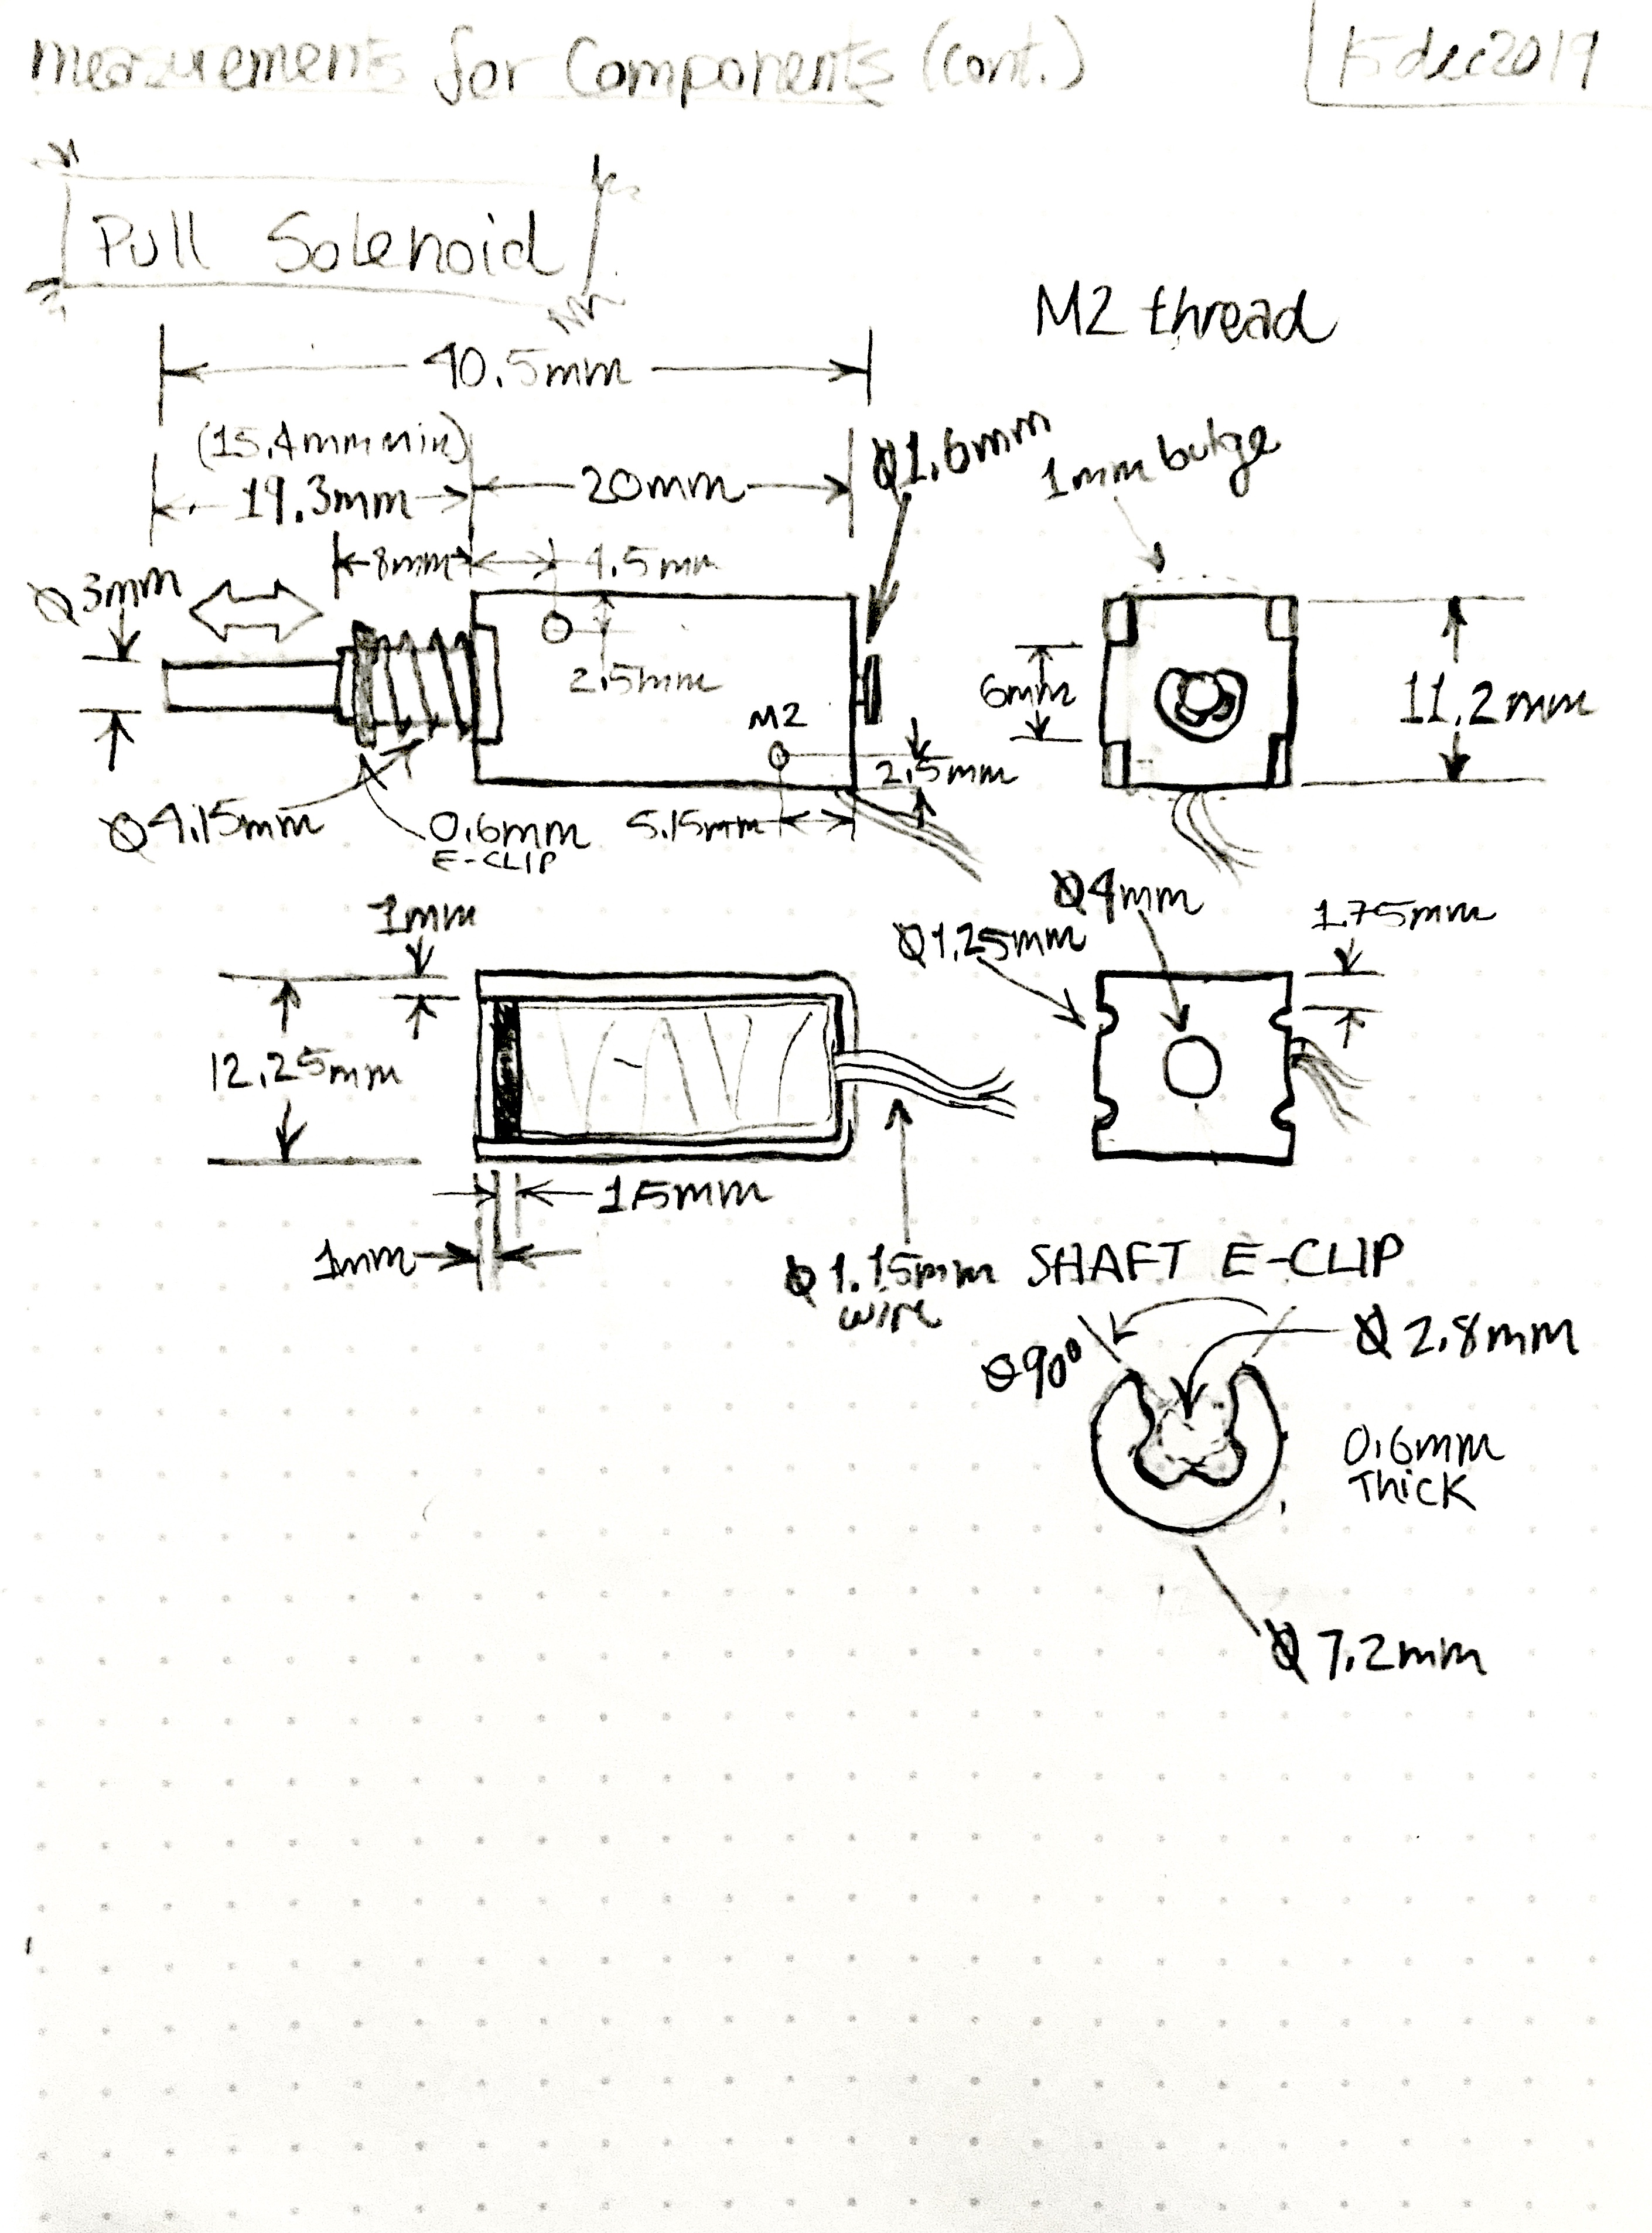 measurements for Components (cont.)
15 dec 2019
Pull Solenoid
M2 thread
40.5mm
(15.4mm min)
19.3mm
20mm
Ø1.6mm
1mm bulge
8mm
4.5mm
Ø3mm
2.5mm
M2
6mm
11.2mm
2.5mm
Ø4.15mm
0.6mm
E-CLIP
5.15mm
1mm
Ø4mm
Ø1.25mm
1.75mm
12.25mm
1.5mm
1mm
Ø1.15mm
wire
SHAFT E-CLIP
Ø2.8mm
Ø90°
0.6mm
Thick
Ø7.2mm